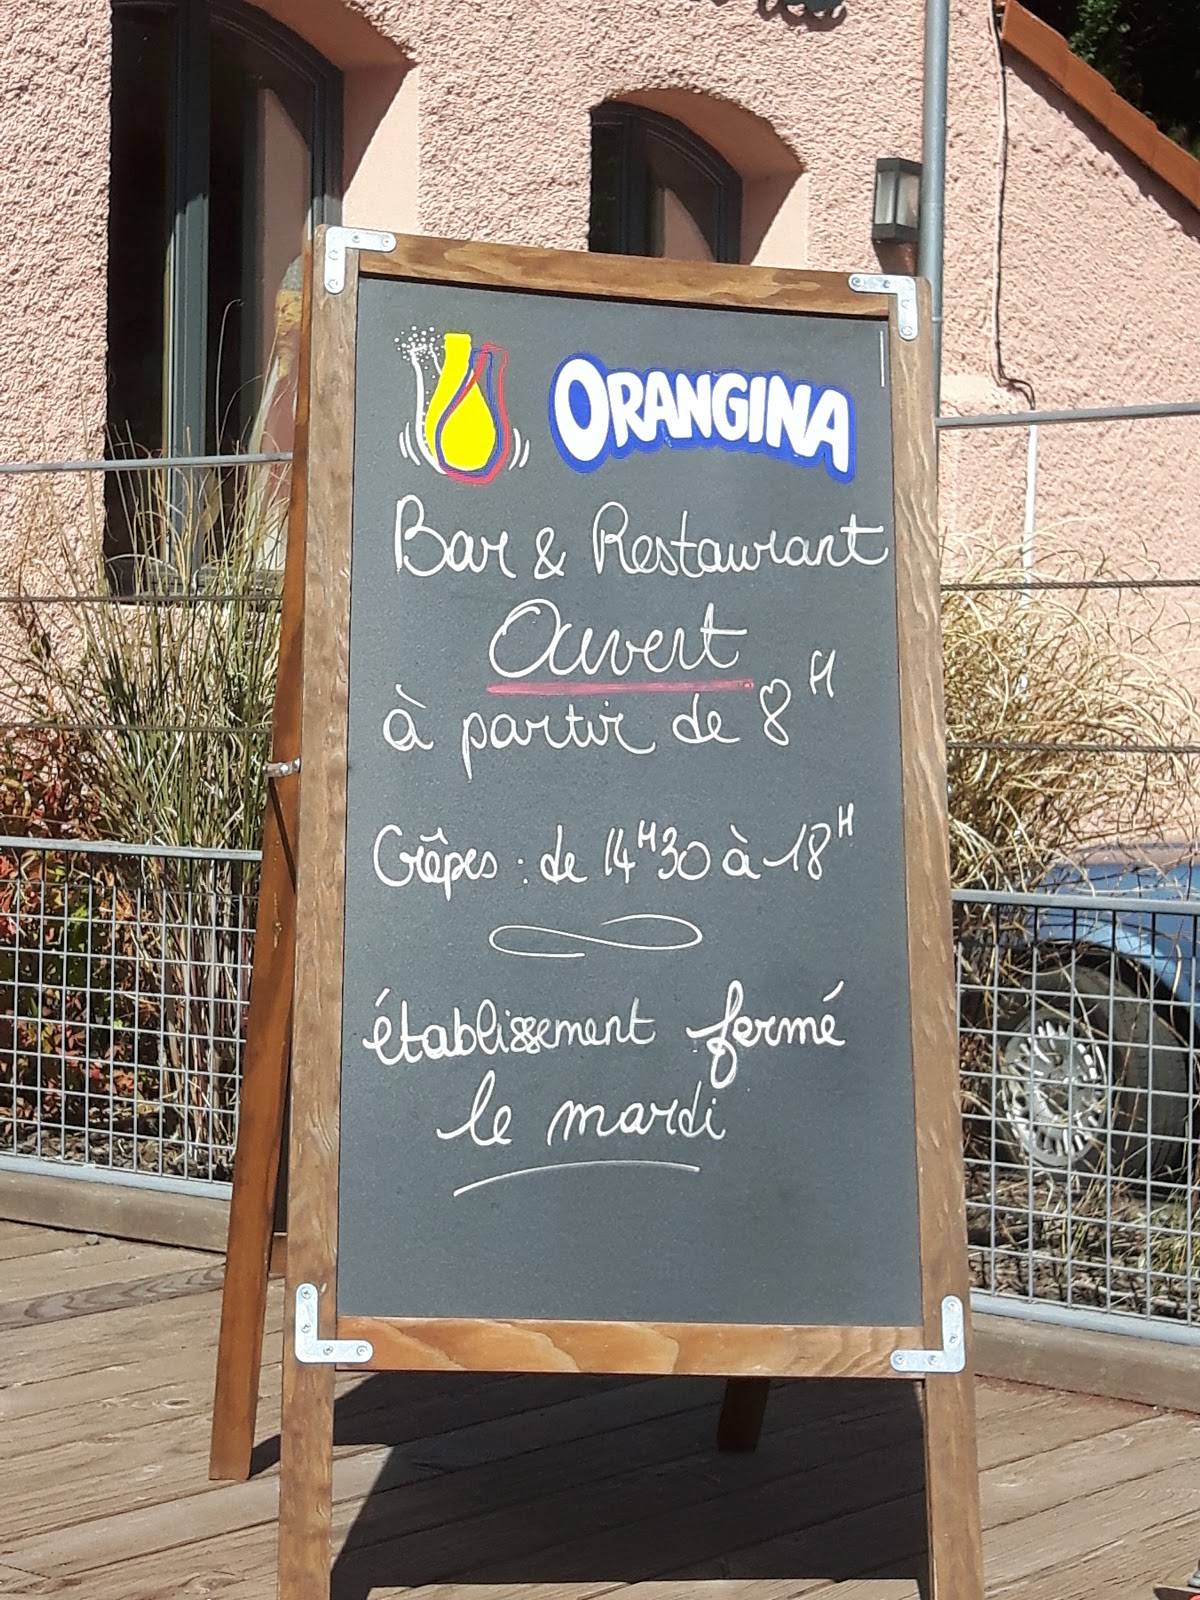 ORANGINA
Bar & Restaurant
Ouvert
à partir de 8H
Crêpes : de 14H30 à 18H
établissement fermé
le mardi